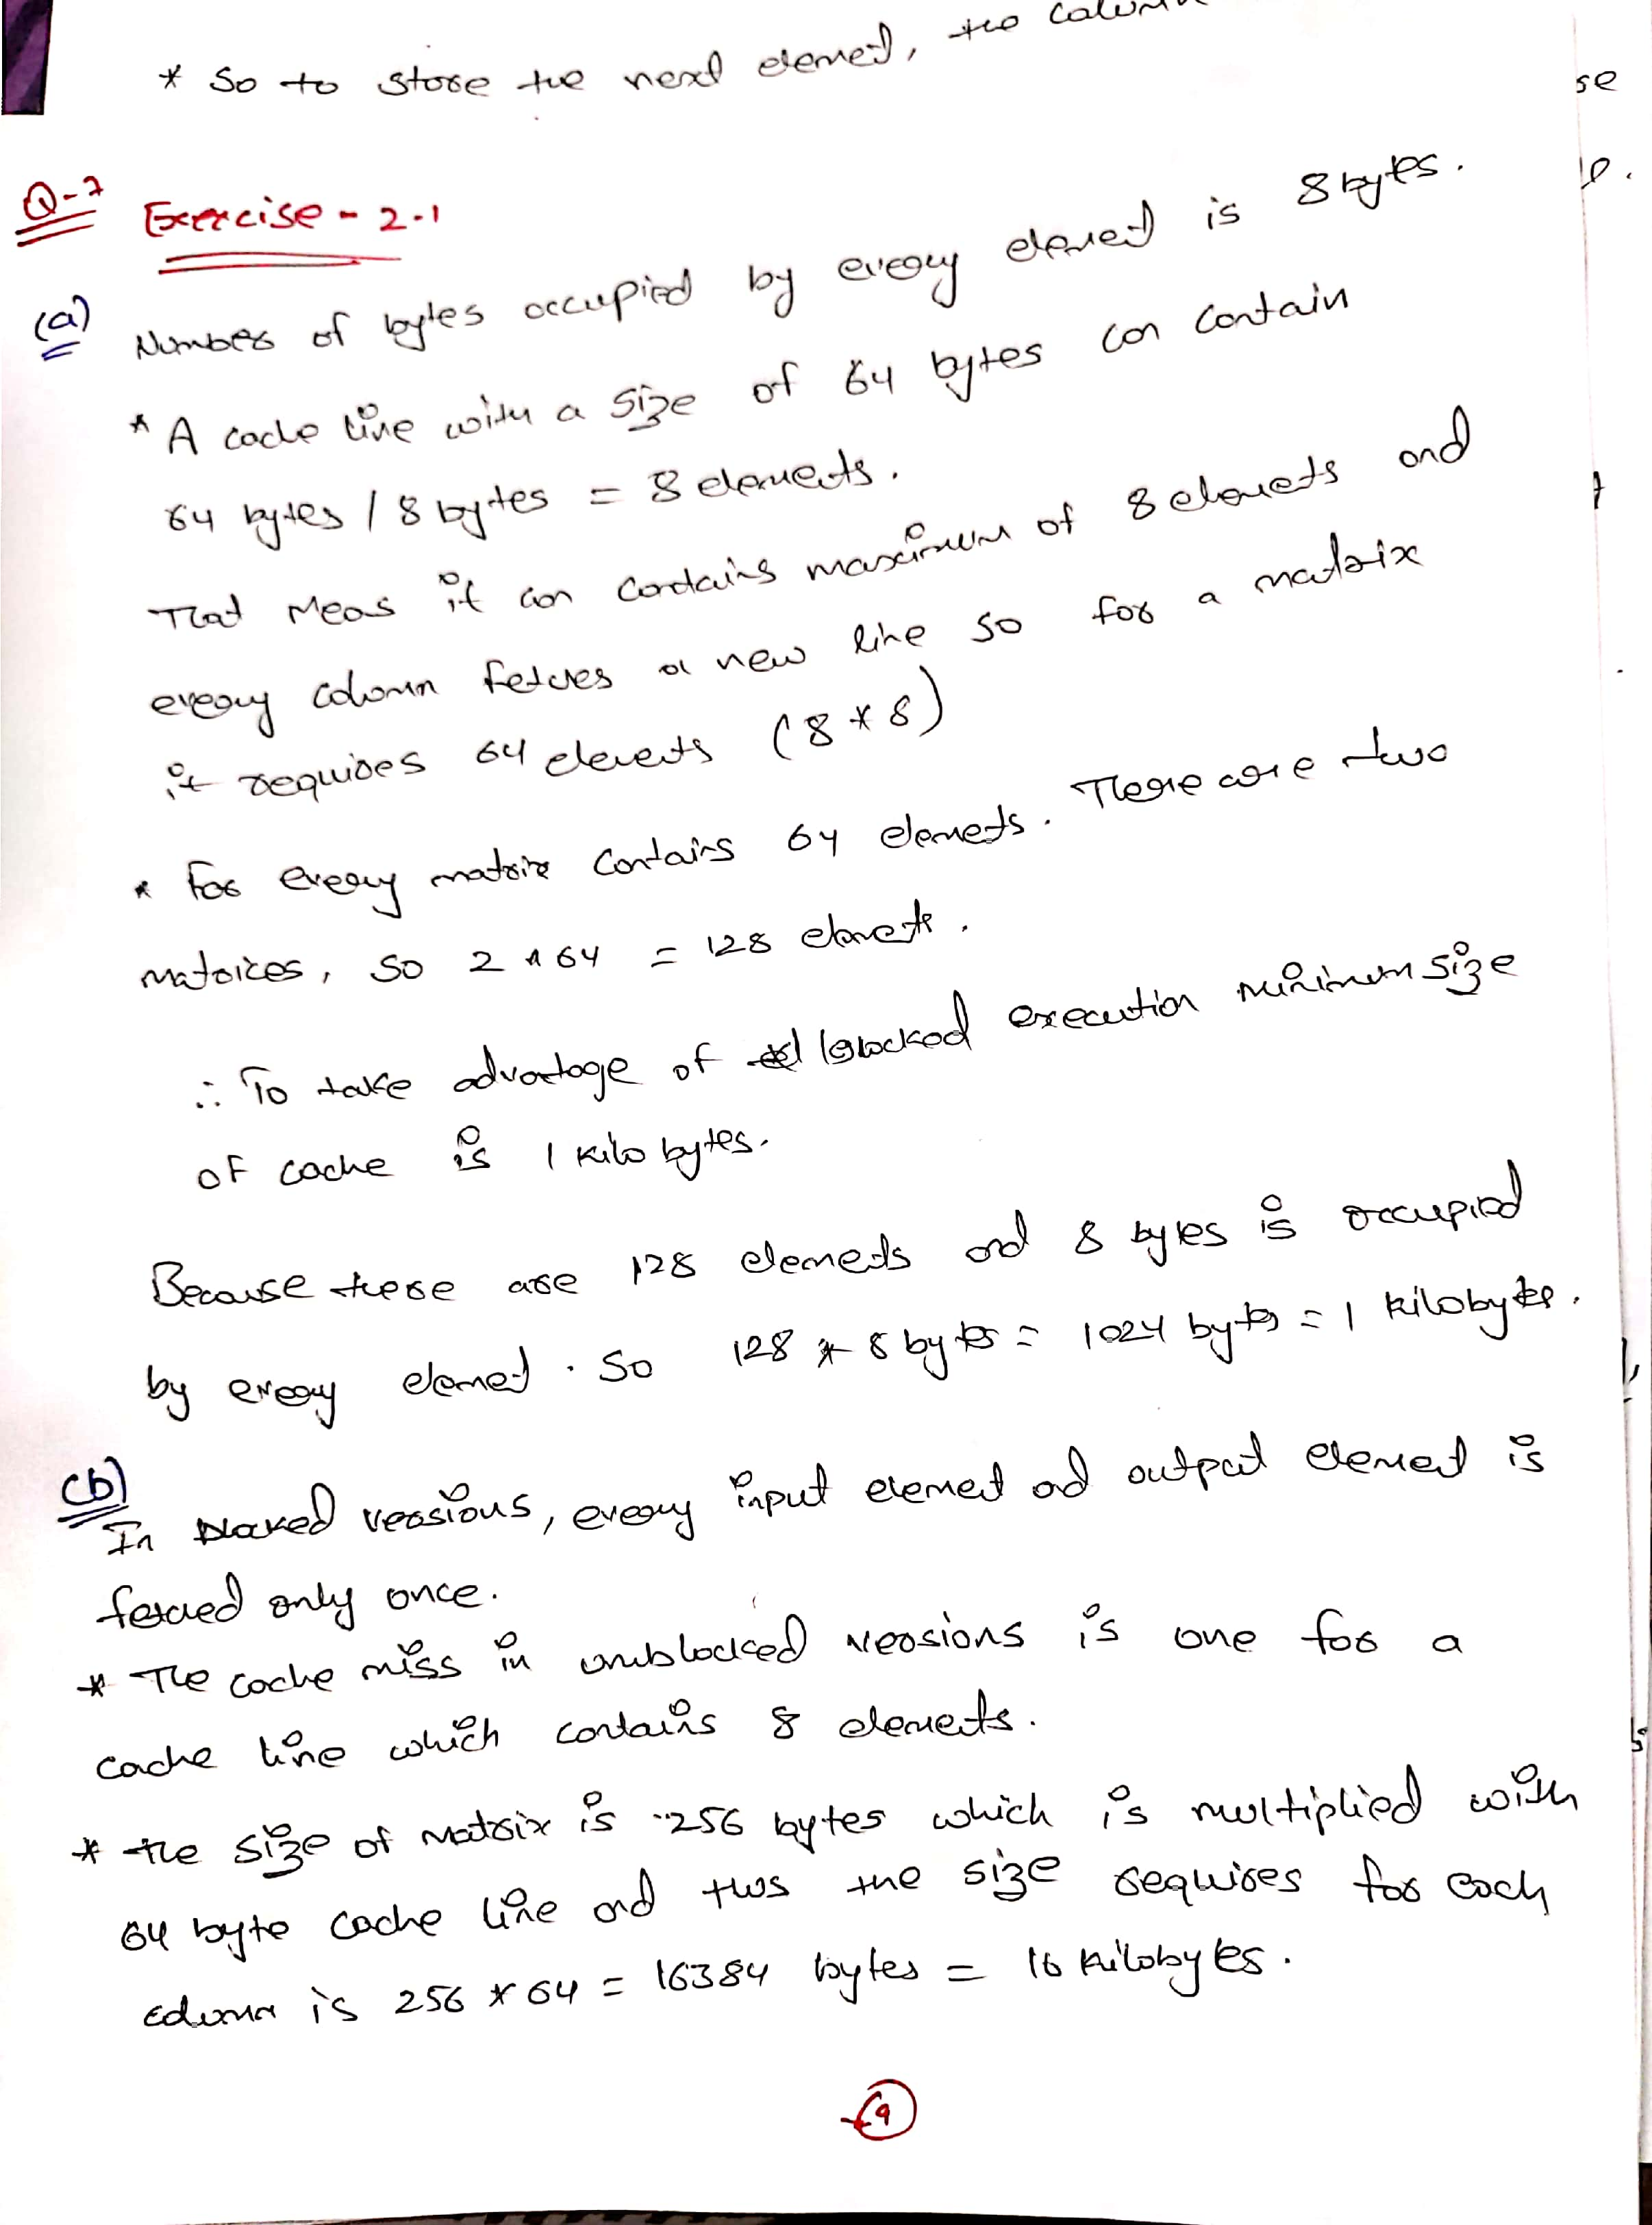 * So to store the next element, the column
se
Q-7 Exercise - 2.1
(a) Number of bytes occupied by every element is 8 bytes.
* A cache line with a size of 64 bytes can contain
64 bytes / 8 bytes = 8 elements.
That means it can contains maximum of 8 elements and
every column fetches a new line so for a matrix
it requires 64 elements (8 * 8)
* For every matrix contains 64 elements. There are two
matrices, so 2 * 64 = 128 elements.
∴ To take advantage of blocked execution minimum size
of cache is 1 kilo bytes.
Because there are 128 elements and 8 bytes is occupied
by every element. So 128 * 8 bytes = 1024 bytes = 1 kilobytes.
(b)
In blocked versions, every input element and output element is
fetched only once.
* The cache miss in unblocked versions is one for a
cache line which contains 8 elements.
* The size of matrix is 256 bytes which is multiplied with
64 byte cache line and thus the size requires for each
column is 256 * 64 = 16384 bytes = 16 kilobytes.
9